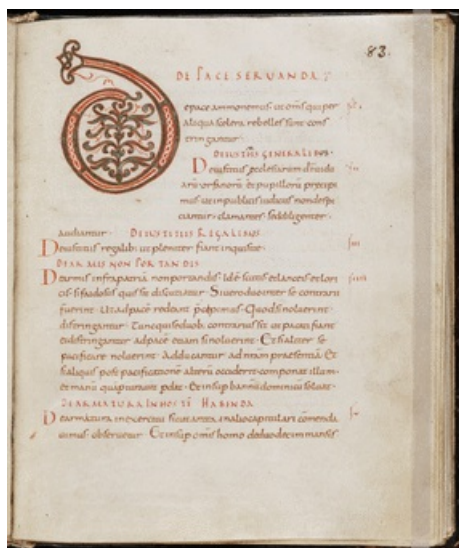 83.
DE PACE SERUANDA
epace ammonemus ut oms qui per
aliqua scelera rebelles sunt cons
tringantur
DE IUSTITIIS GENERALIBUS
De iustitiis ecclesiarum et uidu
arum orfanorum et pupillorum precipi
mus ut in publicis iudiciis non despi
ciantur clamantes sed diligenter
audiantur DE IUSTITIIS REGALIBUS
De iustitiis regalibus ut pleniter fiant inquisite
DE ARMIS NON PORTANDIS
De armis infra patria non portandis Id est scutis et lanceis et lori
cis Si faidosus quis sit discutiatur Si uero duo inter se contrarii
fuerint ut ad pace redeant Quod si noluerint
distringantur contrarius sit ut pacati fiant
et distringantur ad pace etiam si noluerint Et si aliter se
pacificare noluerint adducantur ad nram praesentia Et
si aliquis post pacificatione alteru occiderit componat illum
et manu qua periurauit perdat Et insup bannu dominicu soluat
DE ARMATURA IN HOSTE HABENDA
De armatura in exercitu sicut antea in alio capitulari comenda
uimus obseruetur Et insup omis homo de duodecim mansis